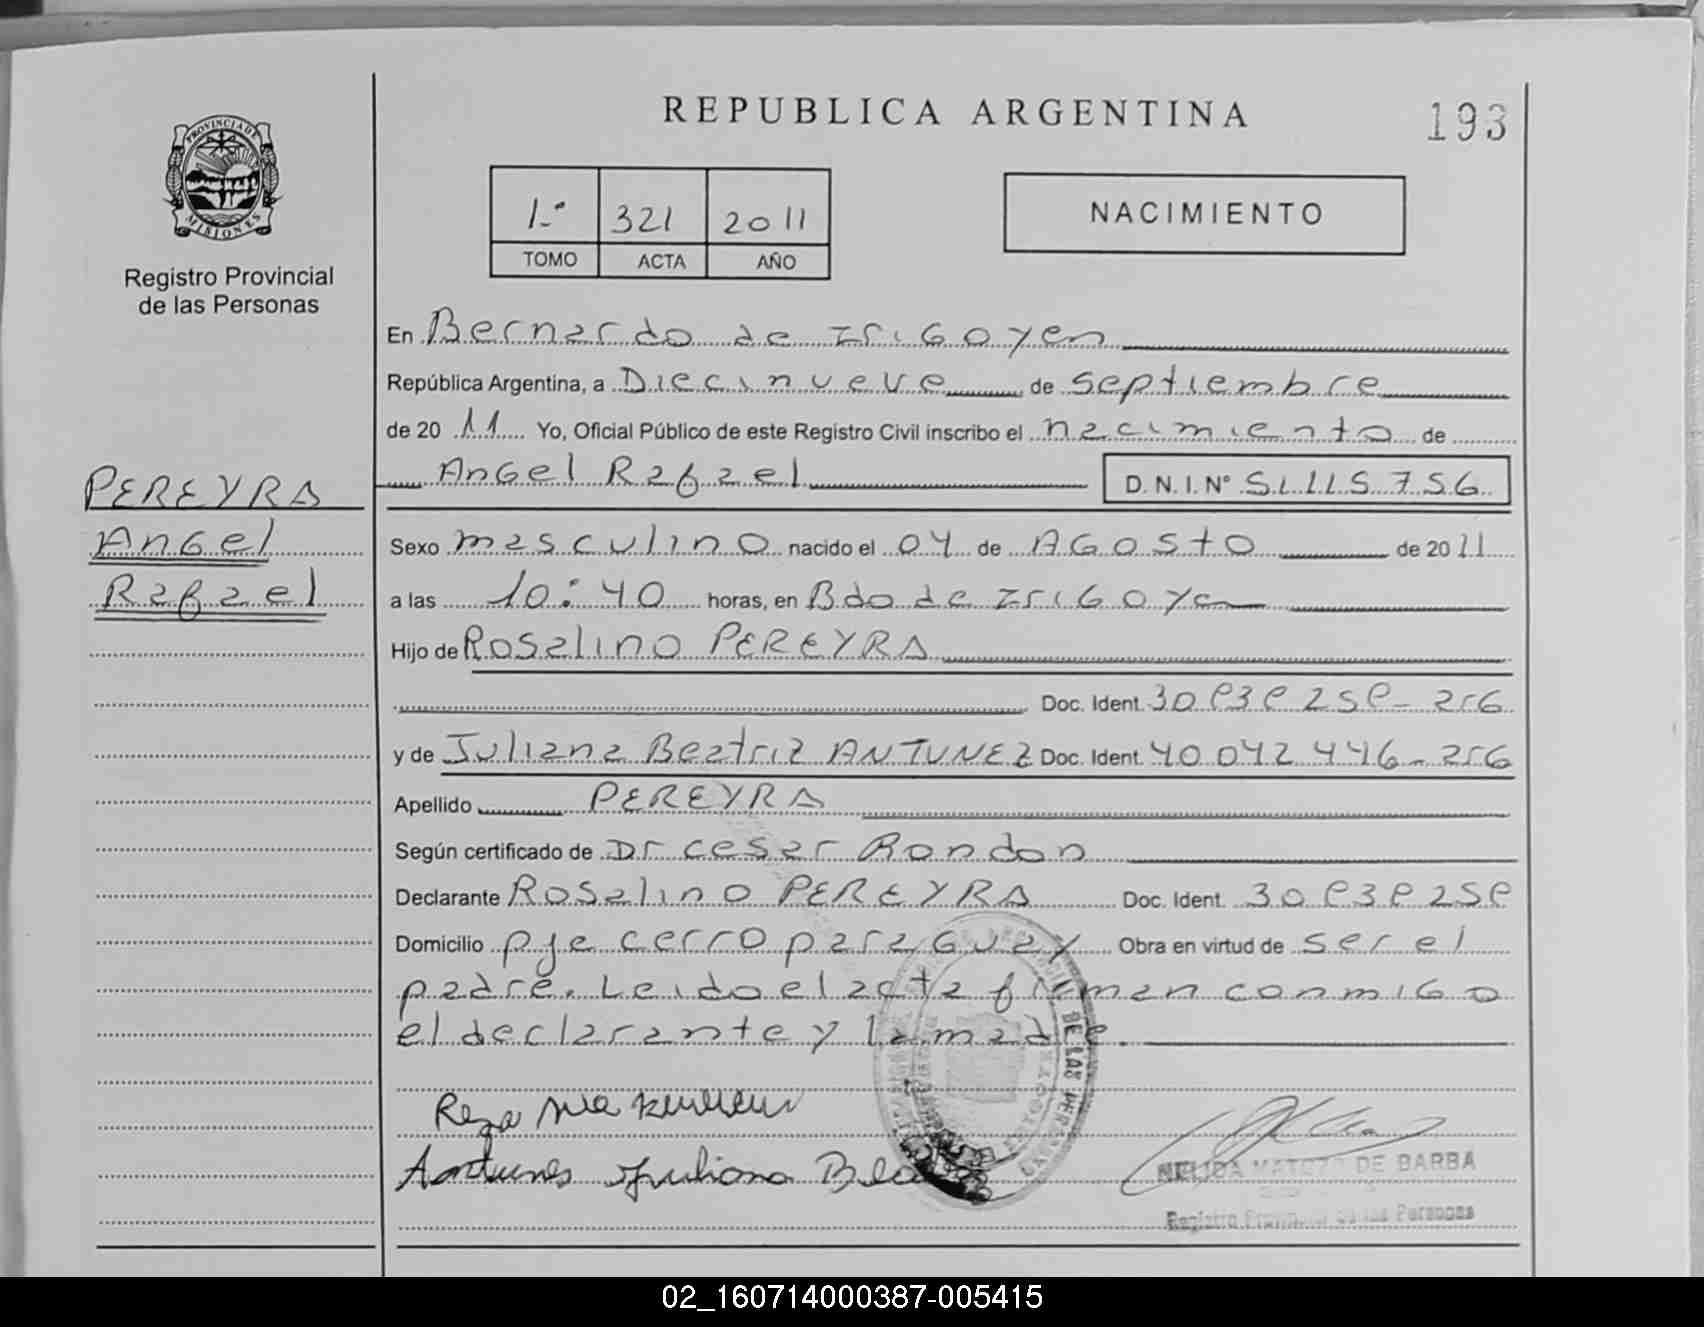 REPUBLICA ARGENTINA
193
PROVINCIA DE
MISIONES
Registro Provincial
de las Personas
1º 321 2011
TOMO ACTA AÑO
NACIMIENTO
En Bernardo de Irigoyen
República Argentina, a Diecinueve de septiembre
de 2011 Yo, Oficial Público de este Registro Civil inscribo el nacimiento de
Angel Rafael D.N.I.Nº 51.115.756
PEREYRA
Angel
Rafael
Sexo masculino nacido el 04 de AGosto de 2011
a las 10:40 horas, en Bdo de Irigoyen
Hijo de Rosalino PEREYRA
Doc. Ident. 30 838 258-256
y de Juliana Beatriz ANTUNEZ Doc. Ident. 40 042 446-256
Apellido PEREYRA
Según certificado de Dr cesar Rondon
Declarante Rosalino PEREYRA Doc. Ident. 30 838 258
Domicilio pje cerro paraguay Obra en virtud de ser el
padre. Leido el acta firman conmigo
el declarante y la madre.
DE LAS
Antunes Juliana
NELIDA MATOZO DE BARBA
Registro Provincial de las Personas
02_160714000387-005415